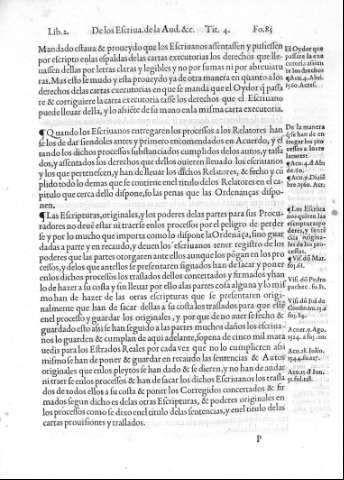 Lib. 2. De los Escriua. de la Aud. &c. Tit. 4. Fo. 85
Mandado estaua & proueydo que los Escriuanos assentassen y pusiessen
por escripto enlas espaldas delas cartas executorias los derechos que lle-
uassen dellas por letras claras y legibles y no por sumas ni por abreuiatu
ras. Mas esso se mudo y esta proueydo ya de otra manera en quanto a los
derechos delas cartas executorias en que se manda que el Oydor q̃ passa
re & corriguiere la carta executoria tasse los derechos que el Escriuano
puede lleuar della, y lo assiēte de su mano en la misma carta executoria.
El Oydor que
passare la exe
cutoria assien
te los derechos
¶ Quando los Escriuanos entregaren los processos a los Relatores han
se los de dar siendoles antes y primero encomendados en Acuerdo, y est
ando los dichos processos substanciados cumplidos delos autos, y tassa
dos, y assentados los derechos que dellos ouieren lleuado los escriuanos
y los que pertenescen, y han de lleuar los dichos Relatores, & fecho y cū
plado todo lo demas que se contiene en el titulo delos Relatores en el ca-
pitulo que cerca dello dispone, so las penas que las Ordenanças dispo-
nen.
De la manera
q̃ se han de en
tregar los pro
cessos a los re
latores
¶ Las Escripturas, originales, y los poderes delas partes para sus Procu-
radores no deuē estar ni traerse enlos processos por el peligro de perder
se y por lo mucho que importa como lo dispone la Ordenāça, sino guar
dadas a parte y en recaudo, y deuen los escriuanos tener registro de los
poderes que las partes otorgaren ante ellos aunque los pōgan en los pro
cessos, y delos que antellos se presentaren signados han de sacar y poner
enlos dichos processos los traslados dellos concertados y firmados y han
lo de hazer a su costa y sin lleuar por ello alas partes cosa alguna y lo mis
mo han de hazer de las otras escripturas que se presentaren origi-
nalmente que han de sacar dellas a su costa los traslados para que esté
enel processo y guardar los originales, y por que de no auerse fecho &
guardado esto assi se han seguido a las partes muchos daños los escriua-
nos lo guarden & cumplan de aqui adelante, so pena de cinco mil mara
uedis para los Estrados Reales por cada vez que no lo cumplieren assi
mismo se han de poner & guardar en recaudo las sentencias & Autos
originales que enlos pleytos se han dado & se dieren, y no han de andar
ni traerse enlos processos & han de sacar los dichos Escriuanos los trasla
dos de todos ellos a su costa & ponerlos Corregidos concertados & fir
mados segun dicho es delas otras Escripturas, & poderes originales en
los processos como se dixo en el titulo delas sentencias, y en el titulo delas
cartas prouisiones y traslados.
Las Escritu
P